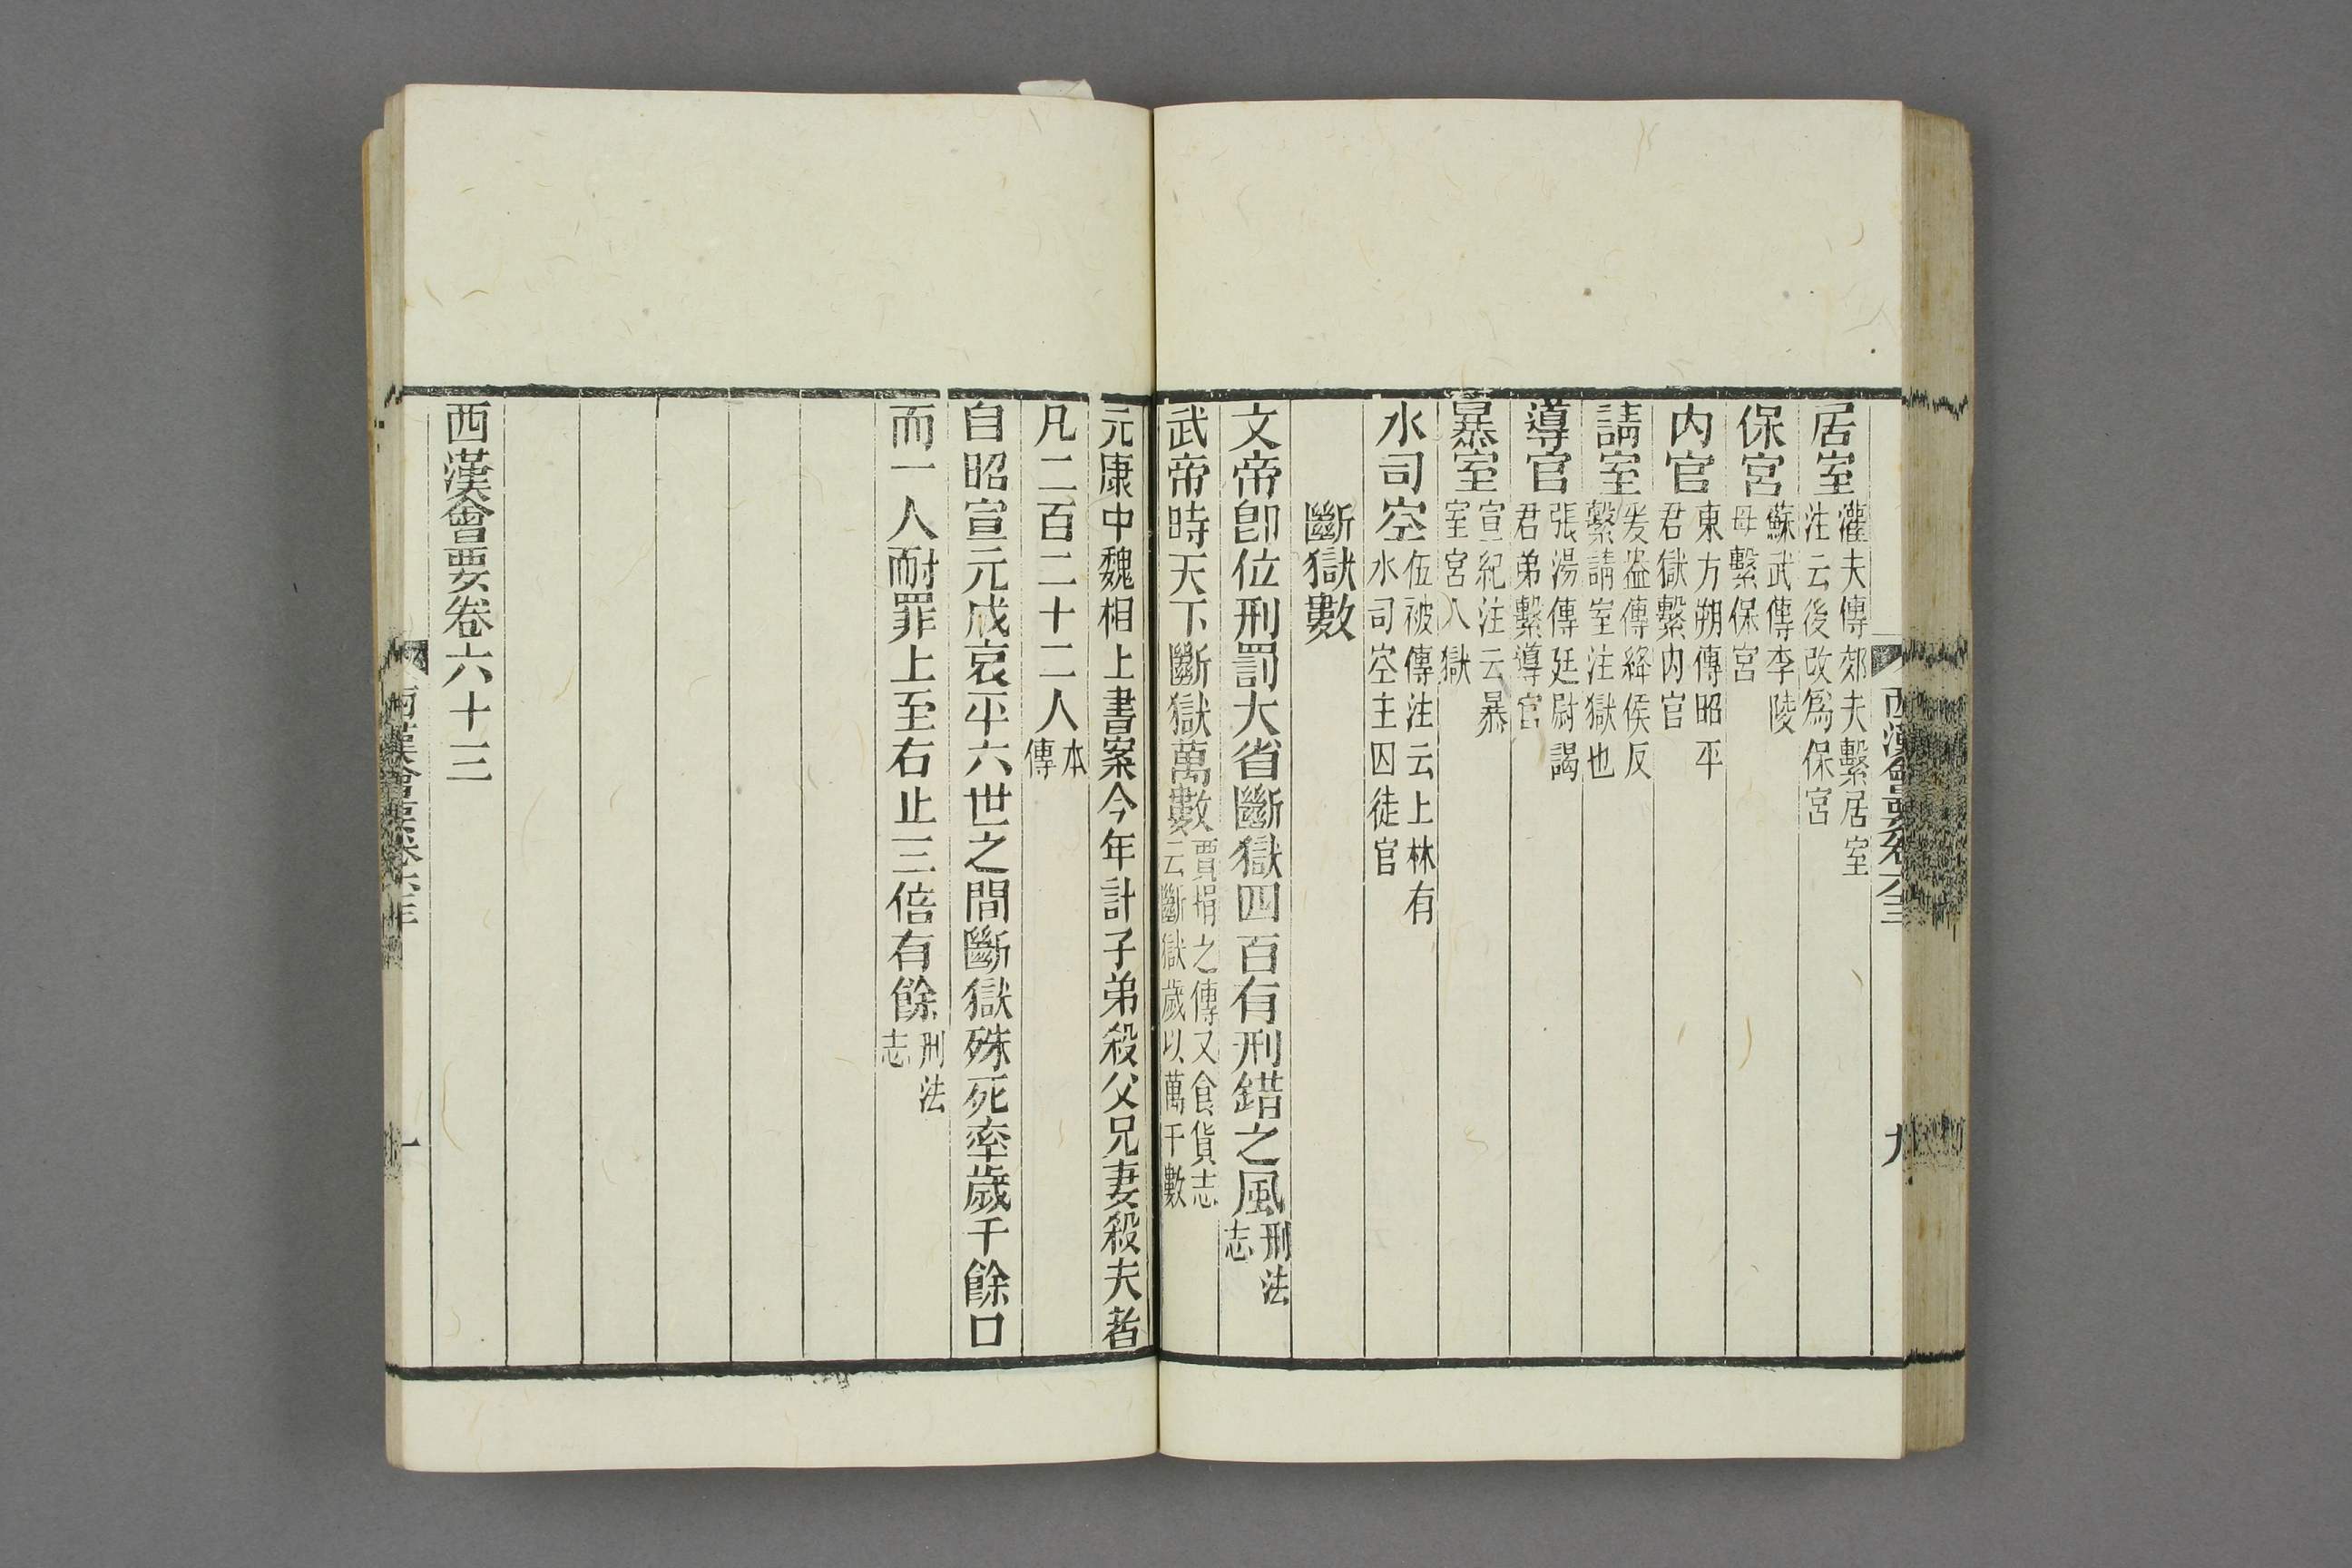 居室灌夫傳郊夫繫居室注云後改爲保宮
保宮蘇武傳李陵母繫保宮
内官東方朔傳昭平君獄繫内官
請室爰盎傳絳侯反繫請室注獄也
導官張湯傳廷尉謁君弟繫導官
暴室宣紀注云暴室宮人獄
水司空伍被傳注云上林有水司空主囚徒官
斷獄數
文帝卽位刑罰大省斷獄四百有刑錯之風刑法志
武帝時天下斷獄萬數賈捐之傳又食貨志云斷獄歲以萬千數
元康中魏相上書案今年計子弟殺父兄妻殺夫者
凡二百二十二人本傳
自昭宣元成哀平六世之間斷獄殊死率歲千餘口
而一人耐罪上至右止三倍有餘刑法志
西漢會要卷六十三